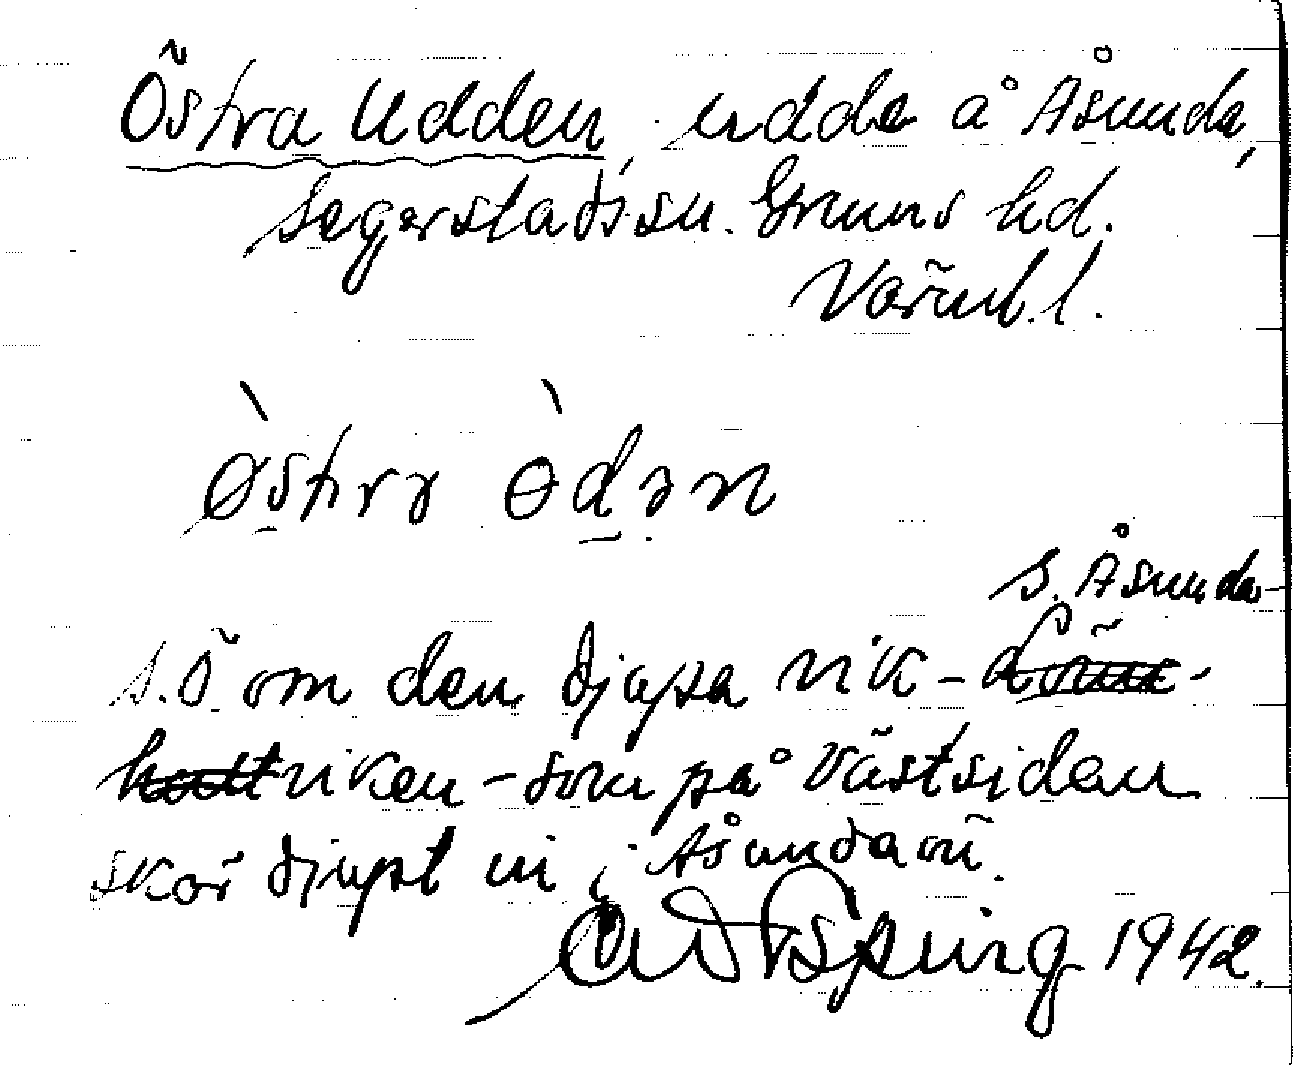 Östra Udden, udde å Åsunda,
Segerstads sn. Grums hd.
Värml.
Ø̀strɐ Ɵ̀dən
S. Åsunda-
s.ö om den djupa vik -
viken - som på västsidan
skär djupt in i Åsundaön.
1942.